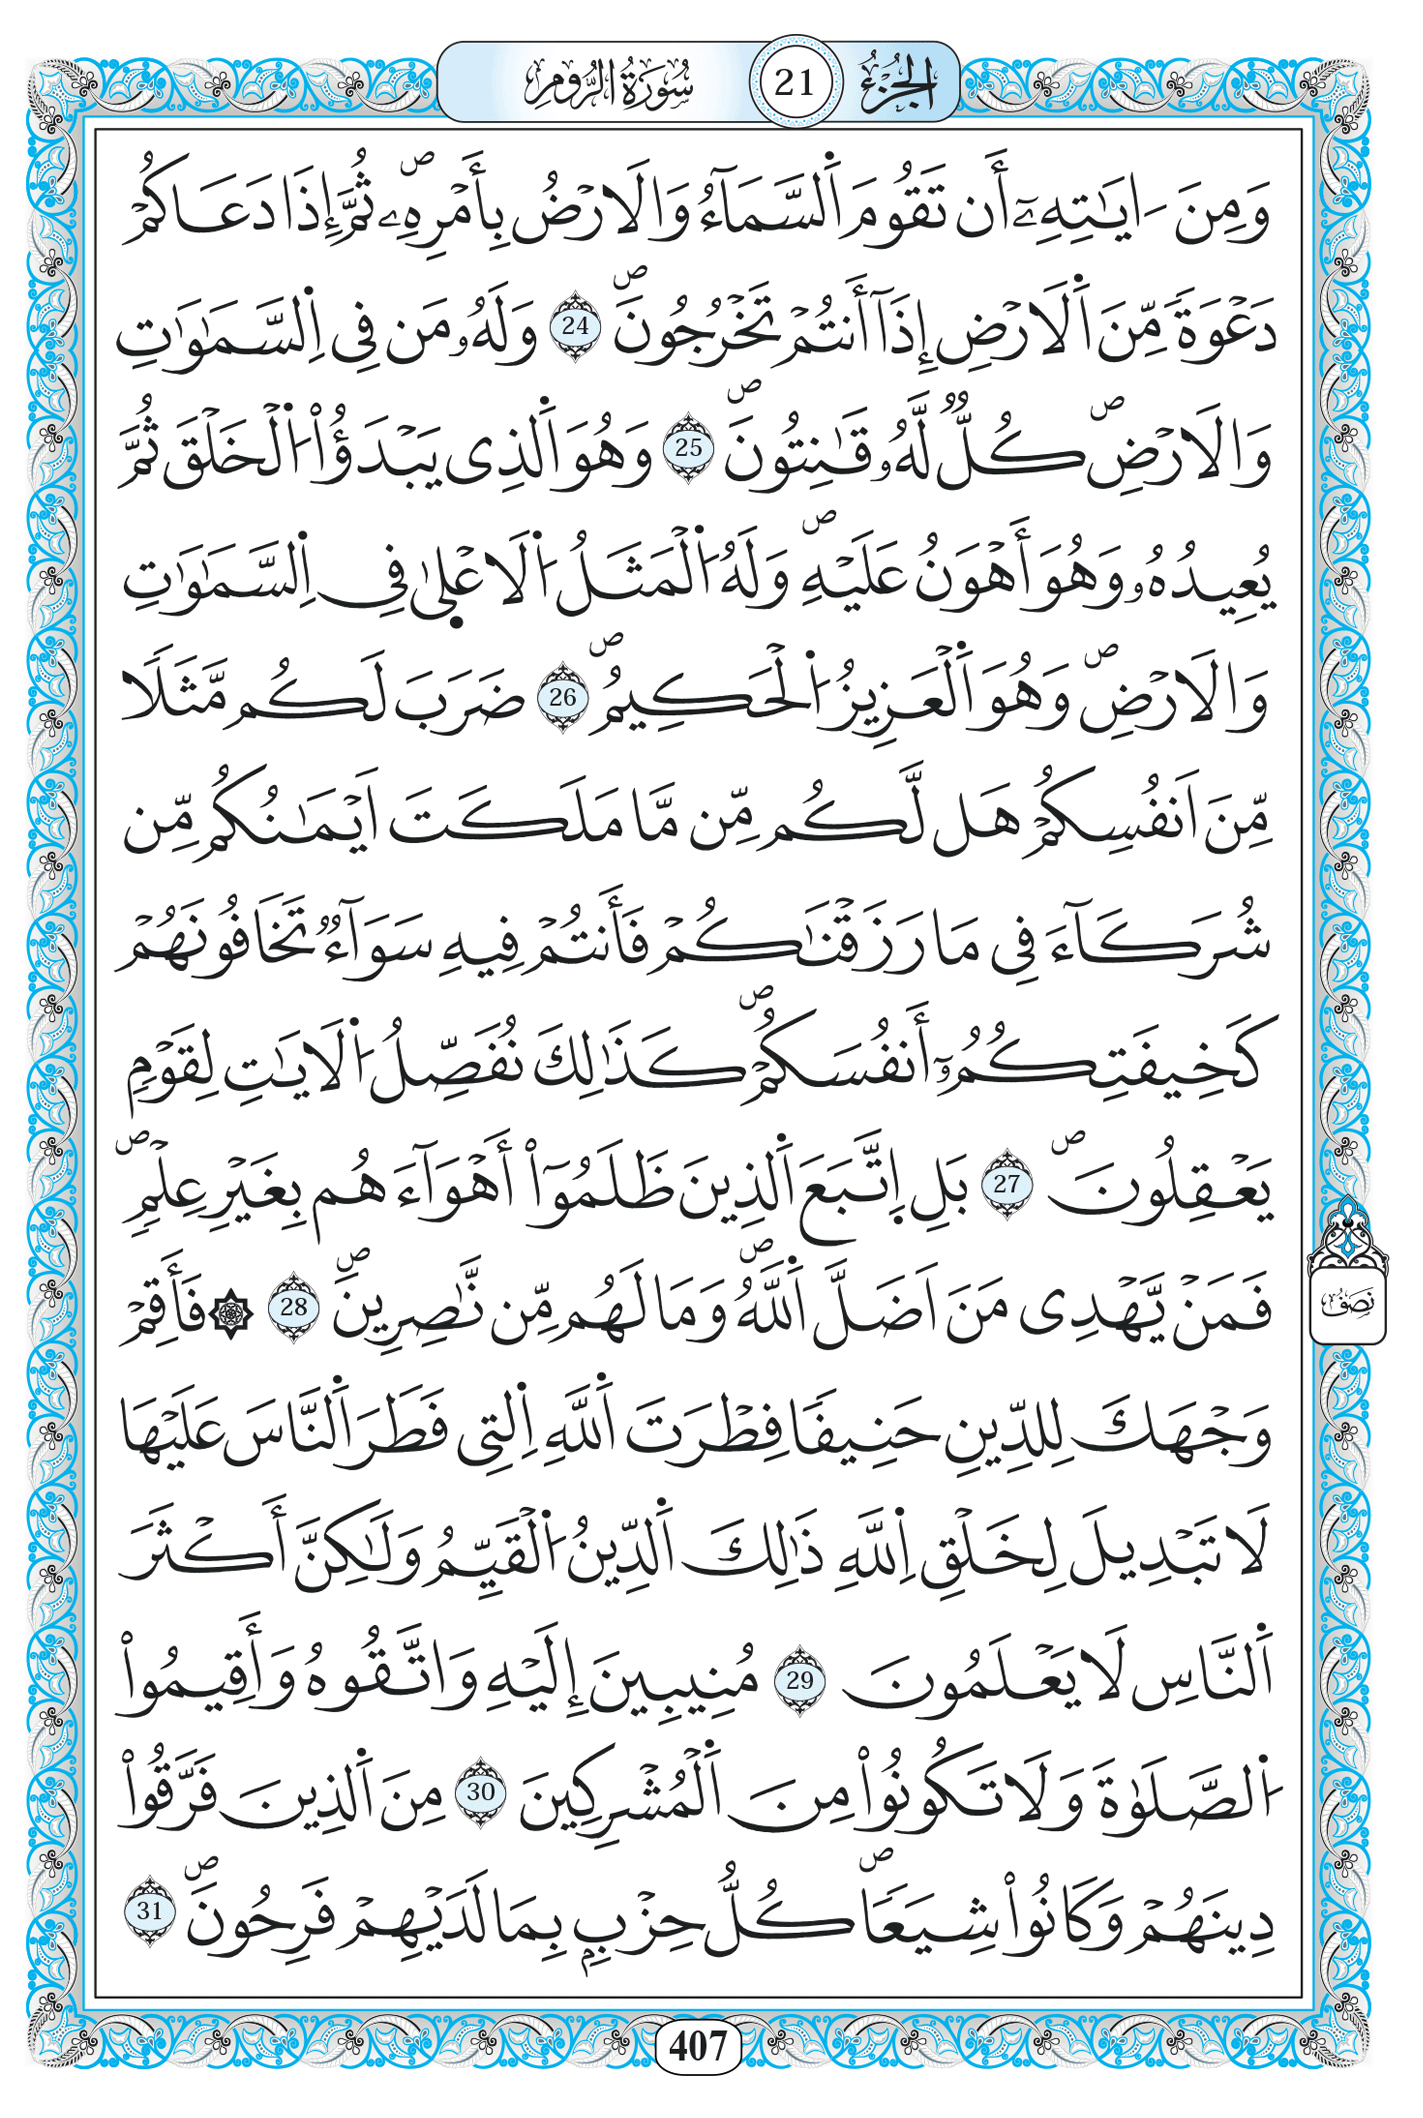 الجُزْءُ 21 سُورَةُ الرُّومِ
وَمِنَ ـَايَٰتِهِۦٓ أَن تَقُومَ اَ۬لسَّمَآءُ وَالَارْضُ بِأَمْرِهِۦۖ ثُمَّ إِذَا دَعَاكُمْ
دَعْوَةٗ مِّنَ اَ۬لَارْضِ إِذَآ أَنتُمْ تَخْرُجُونَۖ 24 وَلَهُۥ مَن فِى اِ۬لسَّمَٰوَٰتِ
وَالَارْضِۖ كُلّٞ لَّهُۥ قَٰنِتُونَۖ 25 وَهُوَ اَ۬لذِى يَبْدَؤُاْ اُ۬لْخَلْقَ ثُمَّ
يُعِيدُهُۥ وَهُوَ أَهْوَنُ عَلَيْهِۖ وَلَهُ اُ۬لْمَثَلُ اُ۬لَاعْل۪ىٰ فِى اِ۬لسَّمَٰوَٰتِ
وَالَارْضِۖ وَهُوَ اَ۬لْعَزِيزُ اُ۬لْحَكِيمُۖ 26 ضَرَبَ لَكُم مَّثَلٗا
مِّنَ اَنفُسِكُمْ هَل لَّكُم مِّن مَّا مَلَكَتَ اَيْمَٰنُكُم مِّن
شُرَكَآءَ فِى مَا رَزَقْنَٰكُمْ فَأَنتُمْ فِيهِ سَوَآءٞ تَخَافُونَهُمْ
كَخِيفَتِكُمُۥٓ أَنفُسَكُمْۖ كَذَٰلِكَ نُفَصِّلُ اُ۬لَايَٰتِ لِقَوْمٖ
يَعْقِلُونَۖ 27 بَلِ اِ۪تَّبَعَ اَ۬لذِينَ ظَلَمُوٓاْ أَهْوَآءَهُم بِغَيْرِ عِلْمٖۖ
فَمَنْ يَّهْدِى مَنَ اَضَلَّ اَ۬للَّهُۖ وَمَا لَهُم مِّن نَّٰصِرِينَۖ 28 ۞فَأَقِمْ
وَجْهَكَ لِلدِّينِ حَنِيفٗا فِطْرَتَ اَ۬للَّهِ اِ۬لتِى فَطَرَ اَ۬لنَّاسَ عَلَيْهَا
لَا تَبْدِيلَ لِخَلْقِ اِ۬للَّهِ ذَٰلِكَ اَ۬لدِّينُ اُ۬لْقَيِّمُ وَلَٰكِنَّ أَكْثَرَ
اَ۬لنَّاسِ لَا يَعْلَمُونَ 29 مُنِيبِينَ إِلَيْهِ وَاتَّقُوهُ وَأَقِيمُواْ
اُ۬لصَّلَوٰةَ وَلَا تَكُونُواْ مِنَ اَ۬لْمُشْرِكِينَ 30 مِنَ اَ۬لذِينَ فَرَّقُواْ
دِينَهُمْ وَكَانُواْ شِيَعٗاۖ كُلُّ حِزْبِۢ بِمَا لَدَيْهِمْ فَرِحُونَۖ 31
نِصَفُ
407